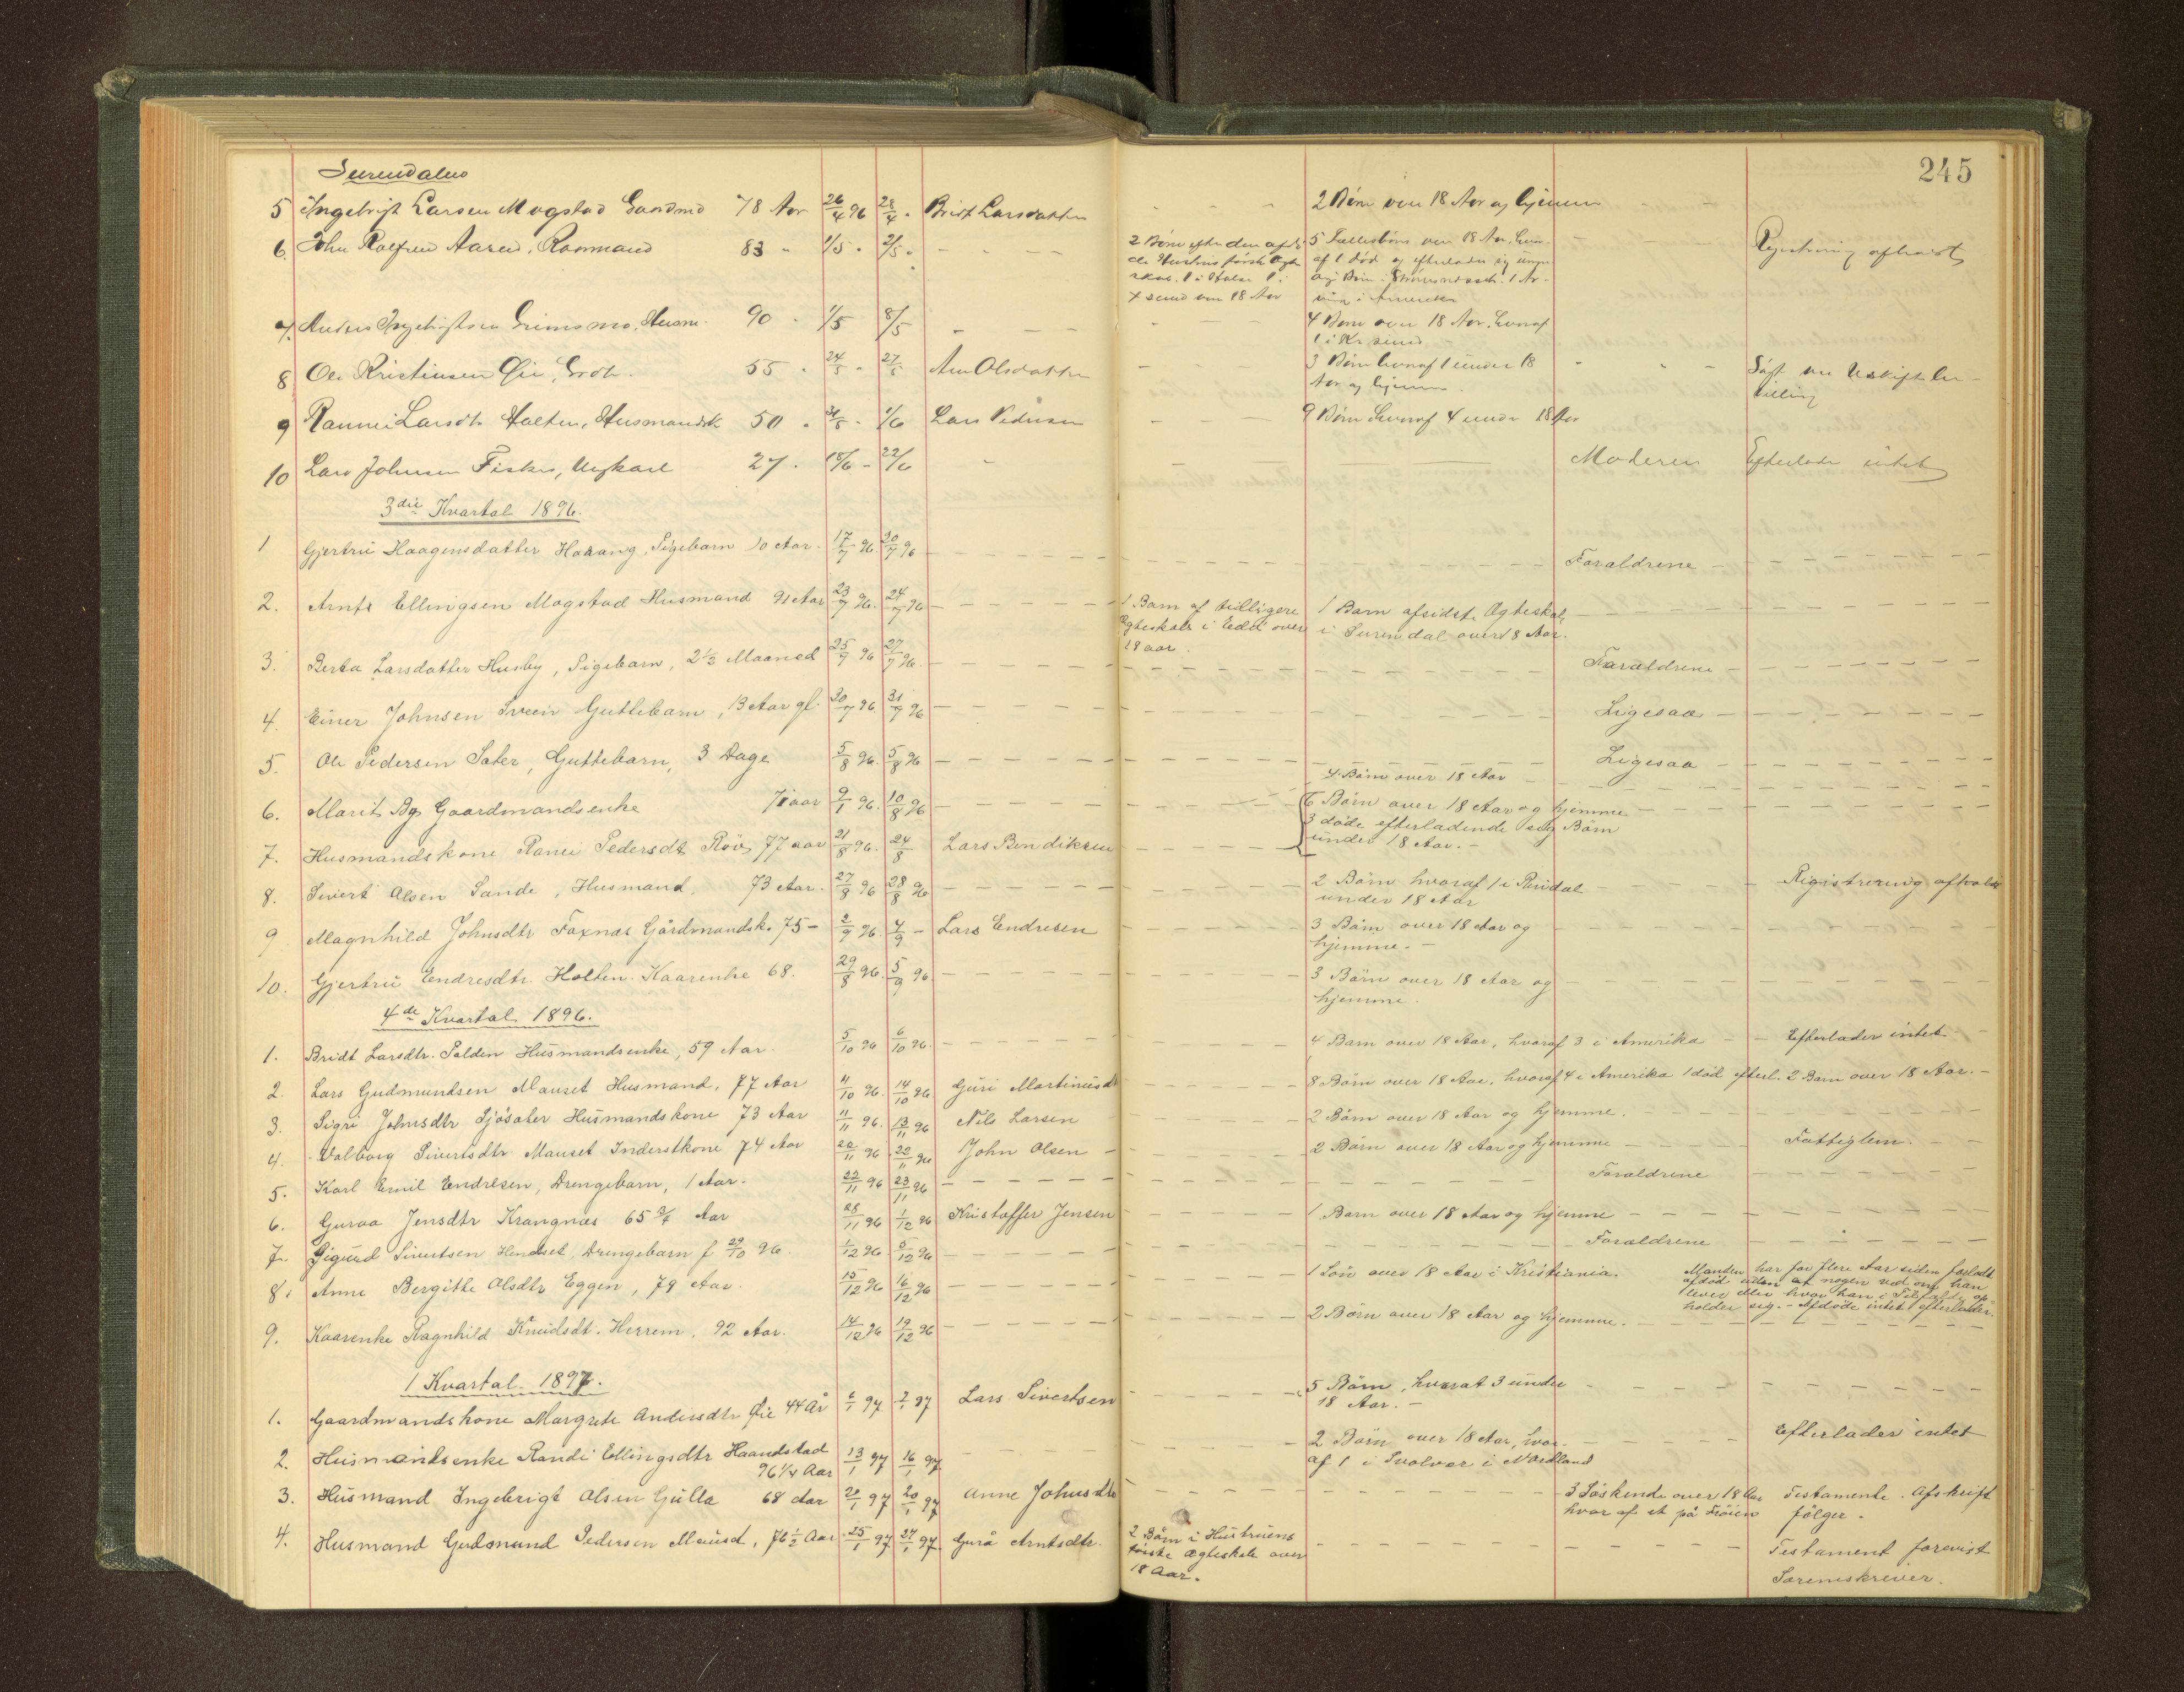 245
Surendalen
5 Ingebrigt Larsen Mogstad Gaardmd 78 Aar 26/4 96 28/4 " Brit Larsdatter - - - 2 Børn over 18 Aar og hjemme
6. John Aaren, 83 " 1/5 " 2/5 " - - - -
2 Børn efter den afdø 5 Fællesbørn over 18 Aar, hvor- Registrering afholdt
de Hustrus første Ægte af 1 død og efterlader sig
skab. 1 i 1 i Børn 1 Ar-
over 18 Aar ving i Amerika
7. Anders Ingebrigtsen Grimsmo, Husm. 90 " 1/5 8/5 - - - 4 Børn over 18 Aar, hvoraf
1 i Kr.sund
8 Ole Kristiansen Øie, Grdb. 55 " 24/5 " 27/5 Ane Olsdatter - - - 3 Børn hvoraf 1 under 18 " " " Søgt om Uskiftbe-
Aar og hjemme villing
9 Rannei Larsdtr Halten, Husmandsk 50 " 31/5 " 1/6 Lars Pedersen - - - 9 Børn hvoraf 4 under 18 Aar
10 Lars Johnsen Fiske, Ungkarl 27 " 18/6 - 22/6 " - - - Moderen Efterlader intet
3die Kvartal 1896.
1 Gjertrü Haagensdatter Harang, Pigebarn 10 Aar. 17/7 96. 20/7 96 - - - - Foraldrene - - -
2. Arnts Ellingsen Mogstad Husmand 91 Aar 23/7 96. 24/7 96 - - - - 1 Barn af tidligere 1 Barn afsidste Ægteskab - - -
Ægteskab i Edd over i Surendal over 18 Aar.
18 aar.
3. Berta Larsdatter Husby, Pigebarn, 2½ Maaned 25/7 96 27/7 96. - - - - Foraldrene - - -
4. Einer Johnsen Sveen Guttebarn, 13 Aar gl. 30/7 96. 31/7 96 - - - - Ligesaa - - -
5. Ole Pedersen Sater, Guttebarn, 3 Dage 5/8 96. 5/8 96 - - - - Ligesaa - - -
6. Marit Bøg Gaardmandsenke 71 aar 9/1 96. 10/8 96 - - - - 4 Børn over 18 Aar - - -
7. Husmandskone Ranei Pedersdt Röv, 77 aar 21/8 96. 24/8 Lars Bendiksen - - - { 6 Börn over 18 Aar og hjemme
3 døde efterladende seg Börn
under 18 Aar. -
8. Sivert Olsen Sande, Husmand. 73 Aar. 27/8 96 28/8 96 - - - - 2 Börn hvoraf 1 i Rindal - - - Rigistrering afholdt
under 18 Aar
9 Magnhild Johnsdtr Foxnas Gårdmandsk. 75 - 2/9 96. 4/9 - Lars Endresen - - - 3 Börn over 18 Aar og - - -
hjemme. -
10. Gjertrü Endresdtr. Holten. Kaarenke 68. 29/8 96. 5/9 96. - - - - 3 Börn over 18 Aar og - - -
hjemme.
4de Kvartal 1896.
1. Bridt Larsdtr. Polden Husmandsenke, 59 Aar. 5/10 96 6/10 96. - - - - 4 Barn over 18 Aar, hvoraf 3 i Amerika - - Efterlader intet.
2. Lars Gudmundsen Mauset Husmand, 77 Aar 11/10 96. 14/10 96 Guri Martinusdt 8 Börn over 18 Aar, hvoraf 4 i Amerika 1 död efterl. 2 Barn over 18 Aar. -
3. Sigri Johnsdtr Sjösater Husmandskone 73 Aar 11/11 96. 13/11 96 Nils Larsen - - - 2 Börn over 18 Aar og hjemme. - - -
4. Valborg Sivertsdtr Mauset Inderstkone 74 Aar 20/11 96 22/11 96 John Olsen - - - - 2 Börn over 18 Aar og hjemme - - - Fattiglem. -
5. Karl Emil Endresen, Drengebarn, 1 Aar. 22/11 96 23/11 96 - - - - Foraldrene - - -
6. Guroa Jensdtr Krangnas 65 3/4 Aar 28/11 96 1/12 96 Kristoffer Jensen - - - 1 Barn over 18 Aar og hjemme - - -
7. Sigurd Sivertsen Hendset, Drengebarn f 29/10 96 1/12 96 5/12 96 - - - - Foraldrene - - -
8. Anne Bergitte Olsdtr Eggen, 79 Aar. 15/12 96 16/12 96 - - - - 1 Sön over 18 Aar i Kristiania. Manden har for flere Aar siden forladt
afdöd uden at nogen ved om han
lever eller hvor han i Tilfælde op-
holder sig. - Afdöde intet efterlader.
9. Kaarenke Ragnhild Knudsdt. Herrem, 92 Aar. 14/12 96 19/12 96 - - - - 2 Börn over 18 Aar og hjemme. - - -
1 Kvartal 1897.
1. Gaardmandskone Margrete Andersdtr Øie 44 År 6/1 97 7/1 97 Lars Sivertsen - - - 5 Börn, hvorat 3 under - - -
18 Aar. -
2. Husmandsenke Randi Ellingsdtr Haandstad 13/1 97 16/1 97 - - - - 2 Börn over 18 Aar, hvor- - - - Efterlader intet
96 1/4 Aar af 1 i Svolvær i Nordland
3. Husmand Ingebrigt Olsen Gulla 68 Aar 20/1 97 20/1 97 Anne Johnsdtr - - - 3 Söskende over 18 Aar Testamente. Afskrift
hvor af et på Fröien fölger.
4. Husmand Gudmund Pedersen Mausd, 76 ½ Aar 25/1 97 27/1 97. Gurå Arntsdtr. 2 Börn i Hustruens - - - Testament forevist
første Ægteskab over Sorenskriver.
18 Aar.